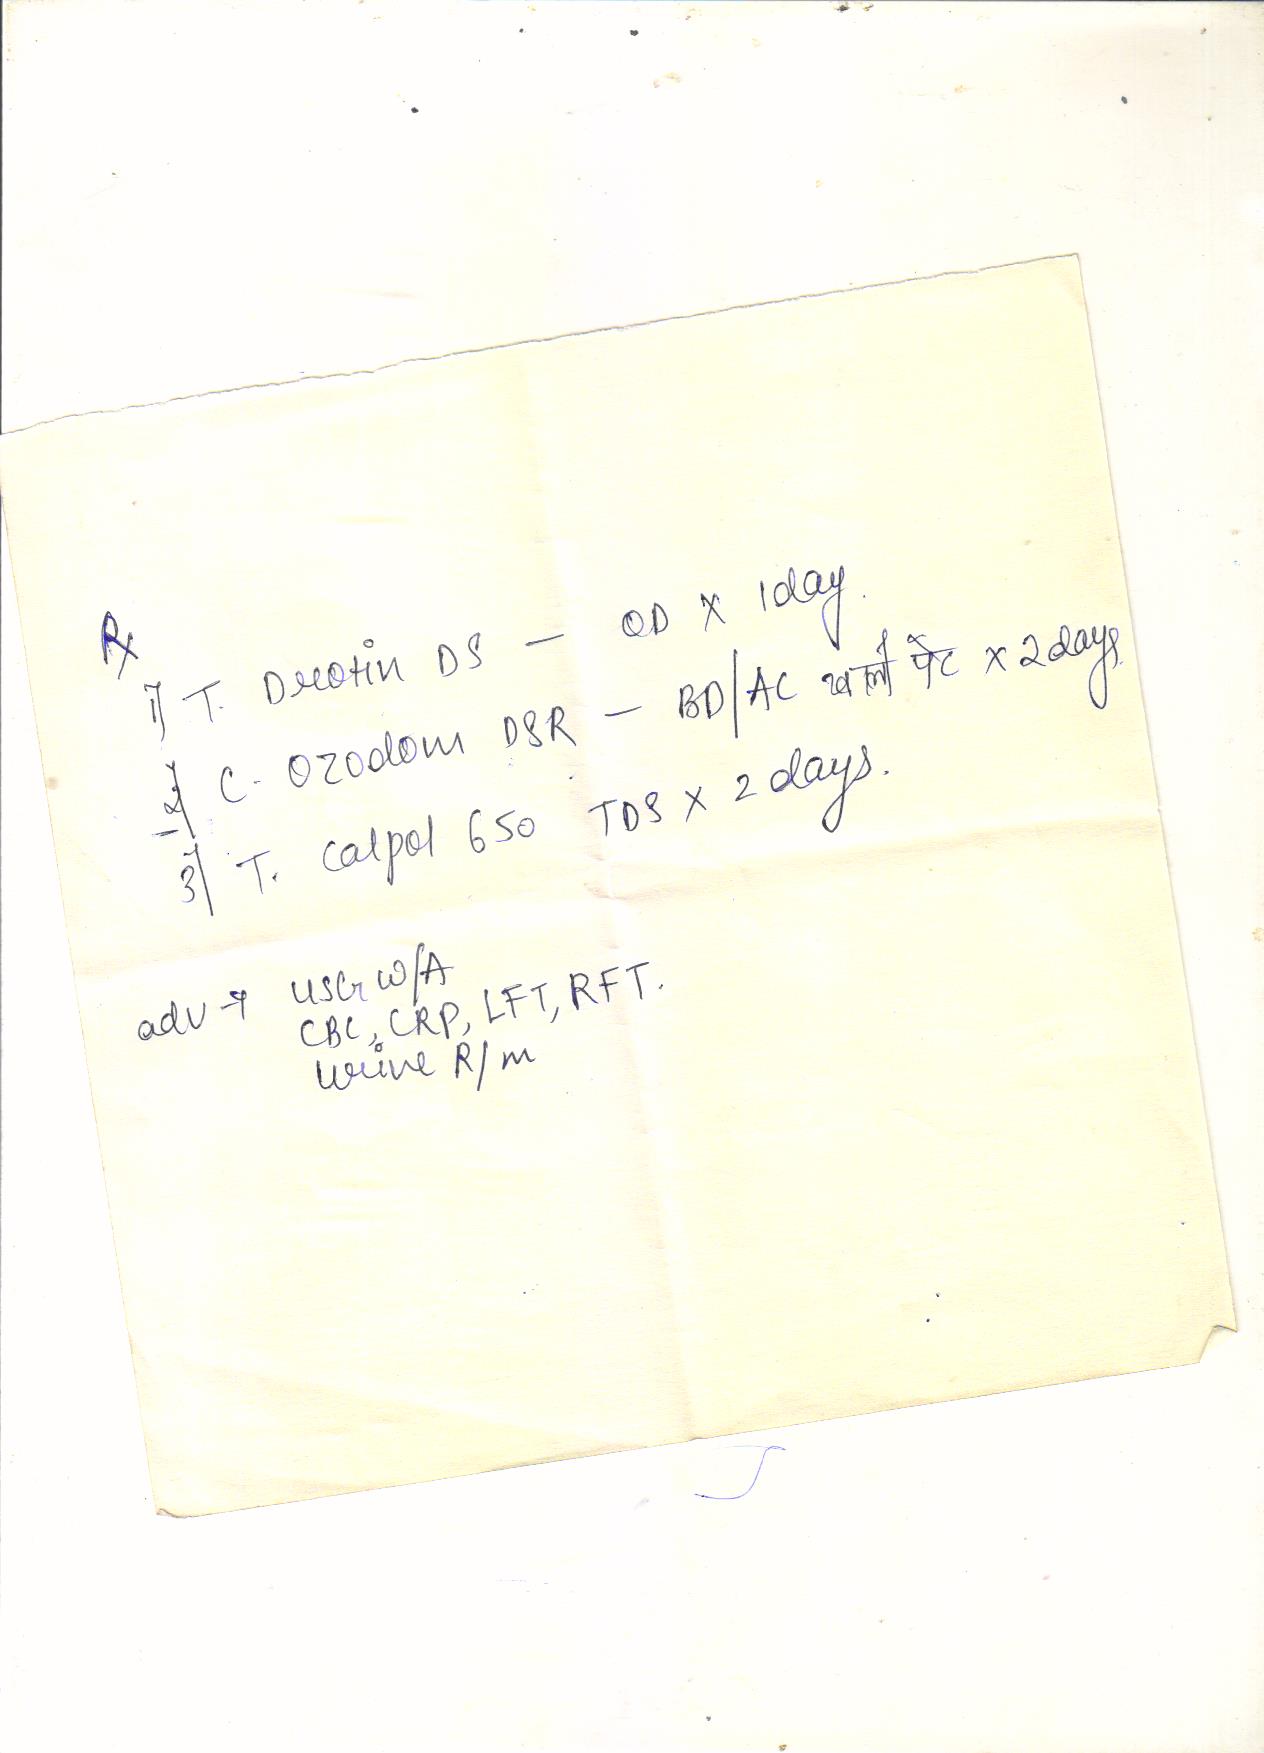 Rx
1) T. Drotin DS — OD x 1 day.
2) C. Ozodom DSR — BD/AC खाली पेट x 2 days.
3) T. Calpol 650 TDS x 2 days.
adv → USG W/A
CBC, CRP, LFT, RFT.
Urine R/m